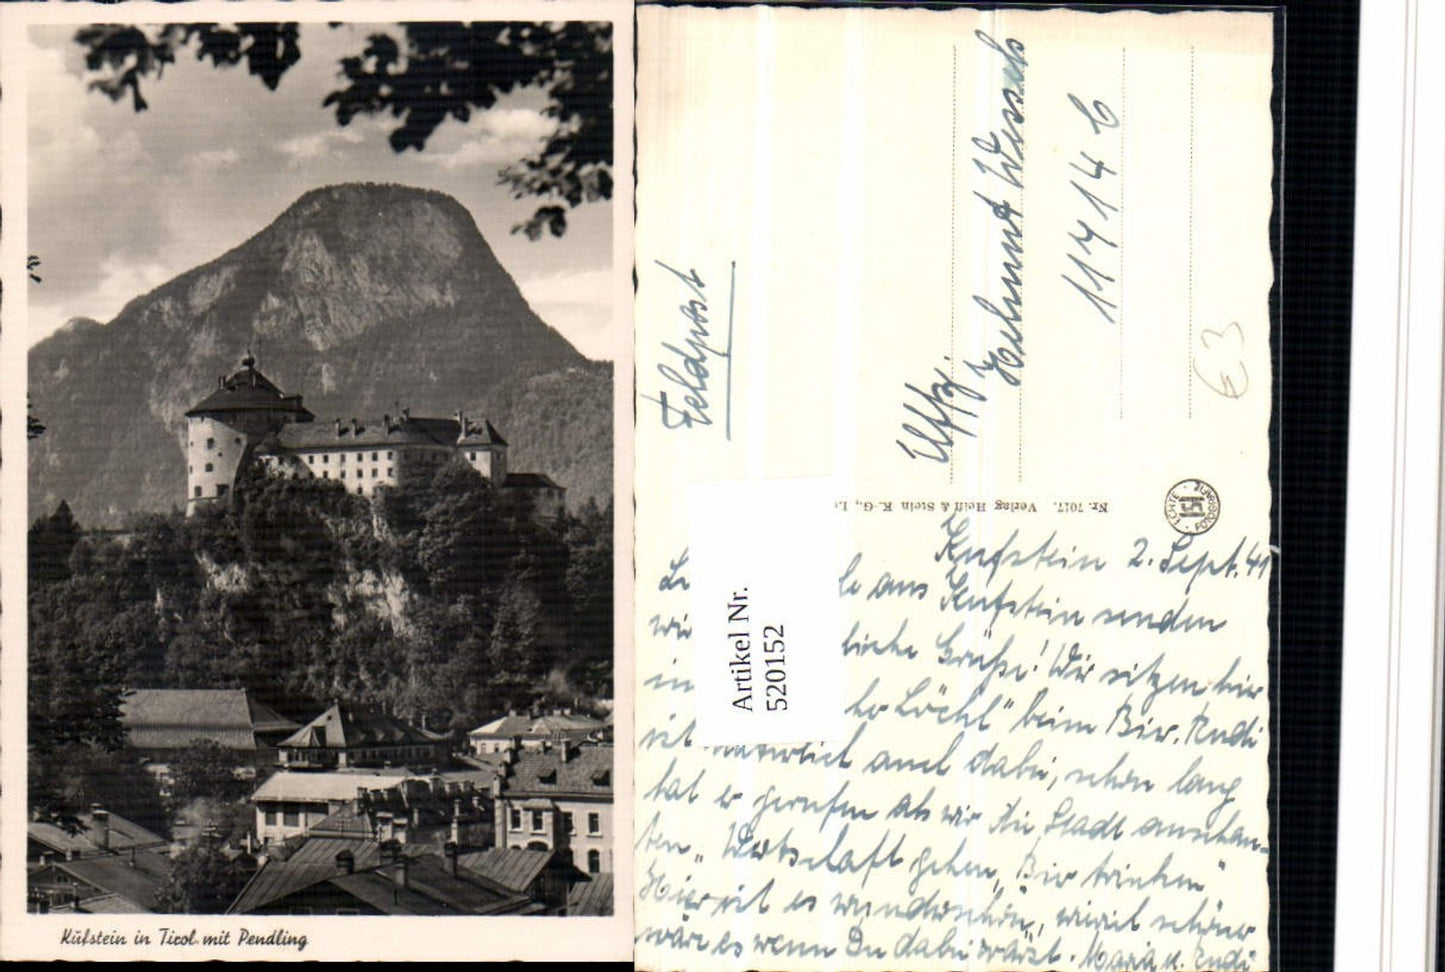 Kufstein in Tirol mit Pendling
Feldpost
Uffz.
Helmut Wessels
11414 C
€3
Nr. 7017. Verlag Heiß & Stein K.-G., I.
ECHTE FOTOGRAFIE
Artikel Nr.
520152
Kufstein 2. Sept. 41
aus Kufstein senden
wir liche Grüße! Wir sitzen hier
in Löchl" beim Bier. Rudi
auch dabei, schon lang
hat er gerufen als wir die Stadt anschau-
ten „Wirtschaft gehen, Bier trinken"
Hier ist es wunderschön, wieviel schöner
wäre es wenn Du dabei wärst. Maria u. Rudi